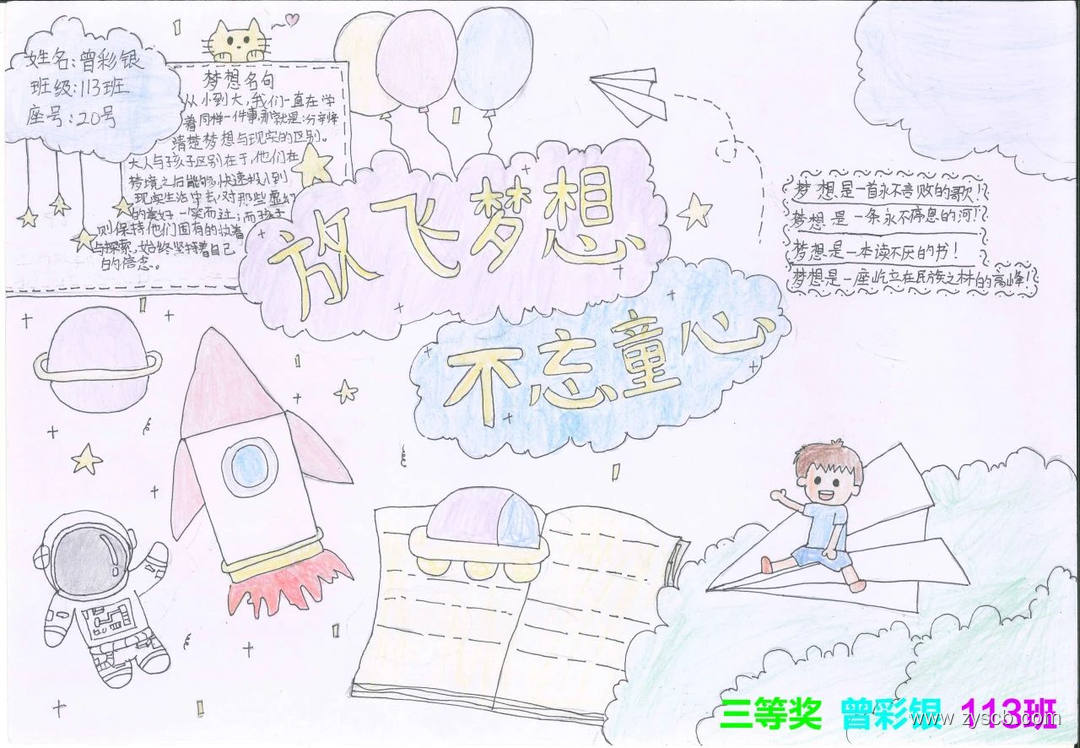 姓名:曾彩银
班级:113班
座号:20号
梦想名句
从小到大,我们一直在学
着同样一件事,那就是:分辛择
清楚梦想与现实的区别。
大人与孩子区别在于,他们在
梦境之后能够快速投入到
现实生活中去,对那些虚幻
的美好一笑而过;而孩子
则保持他们固有的执着
与探索,始终坚持着自己
的信念。
放飞梦想
不忘童心
梦想是一首永不言败的歌!
梦想是一条永不停息的河!
梦想是一本读不厌的书!
梦想是一座屹立在民族之林的高峰!
三等奖 曾彩银 113班
www.zyscb.com